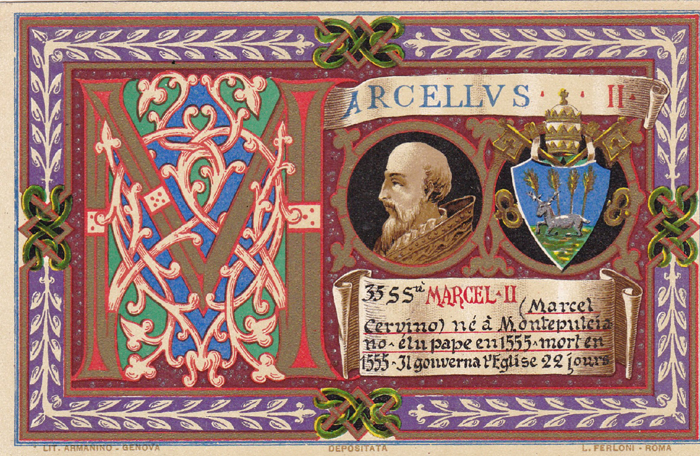 MARCELLVS · · II ·
35 SSté MARCEL-II
(Marcel
Cervino) né à Montepulcia
no-élu pape en 1555-mort en
1555-Il gouverna l'Eglise 22 jours
LIT. ARMANINO - GENOVA
DEPOSITATA
L. FERLONI - ROMA